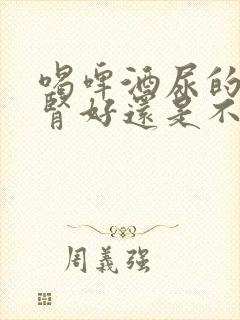 喝啤酒尿的
腎好還是不
周義強